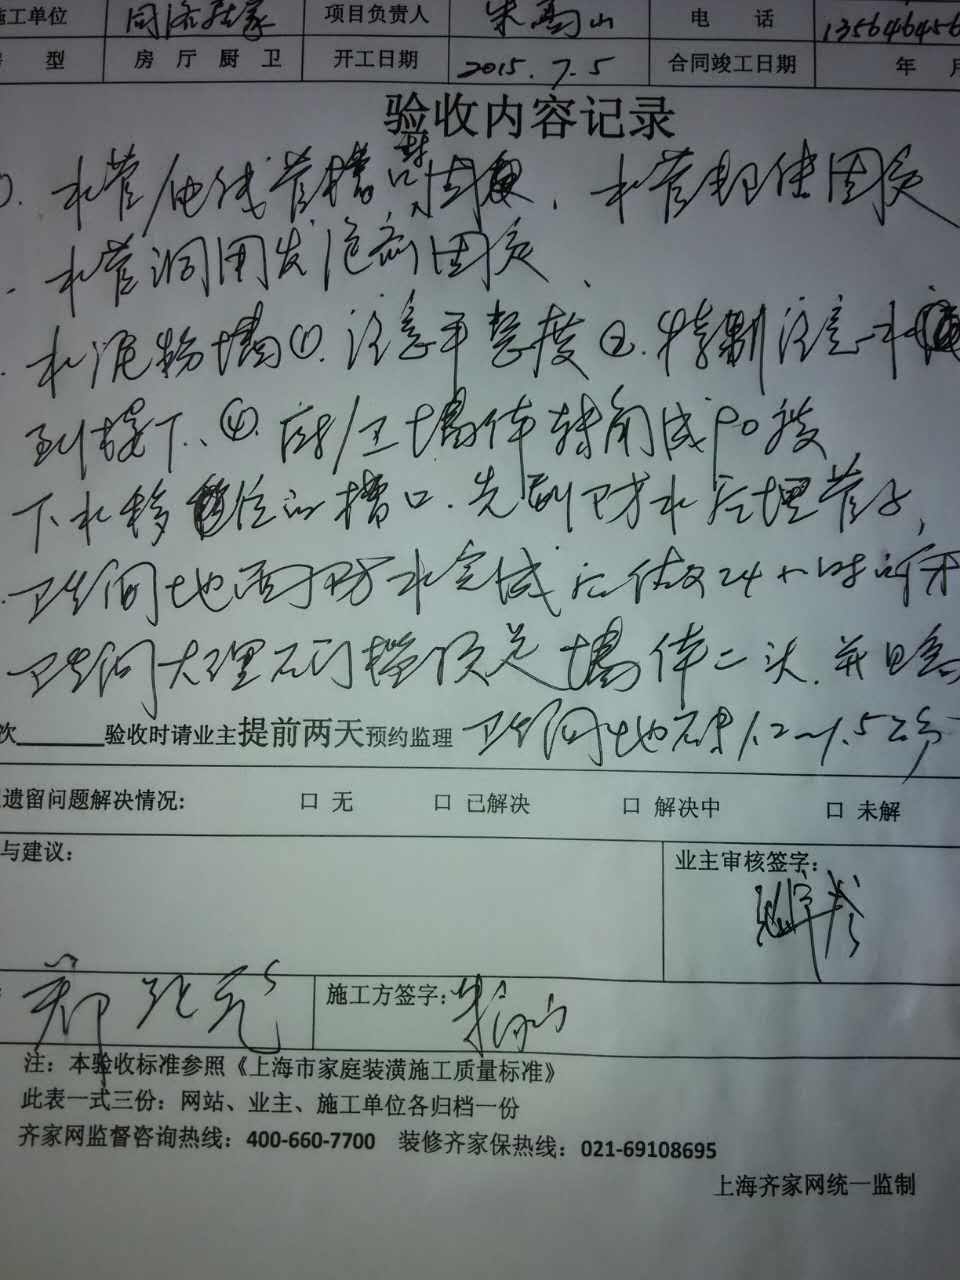 施工单位 同济经家 项目负责人 朱高山 电 话 135646456
型 房 厅 厨 卫 开工日期 2015.7.5 合同竣工日期 年 月
验收内容记录
水管/电线管槽口封固定、水管卫生固定
水管洞用发泡剂固定、
水泥粉墙①.注意平整度②.特别注意水
到接下、④.厨/卫墙体转角成90度
下水移位的槽口.先刷防水后埋管子,
卫生间地面防水完成后做24小时的闭
卫生间大理石门槛顶足墙体二头.并
次 验收时请业主提前两天预约监理 卫生间地砖1.2~1.5公分
遗留问题解决情况: □ 无 □ 已解决 □ 解决中 □ 未解
与建议: 业主审核签字:
郑 施工方签字: 朱高山
注: 本验收标准参照《上海市家庭装潢施工质量标准》
此表一式三份: 网站、业主、施工单位各归档一份
齐家网监督咨询热线: 400-660-7700 装修齐家保热线: 021-69108695
上海齐家网统一监制